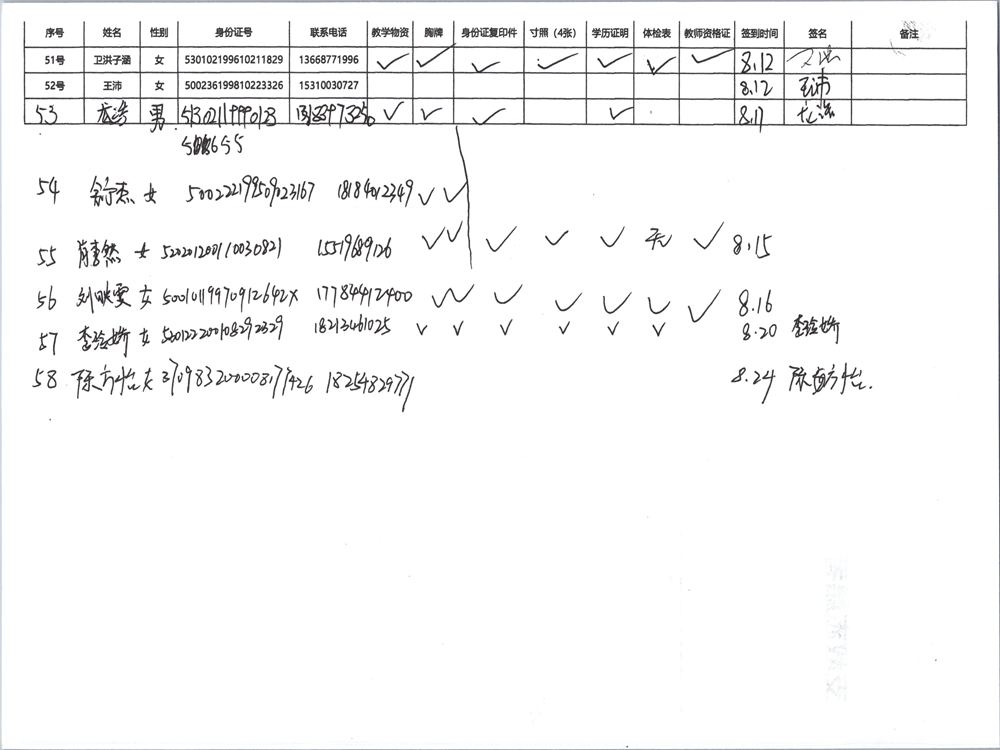 序号 姓名 性别 身份证号 联系电话 教学物资 胸牌 身份证复印件 寸照（4张） 学历证明 体检表 教师资格证 签到时间 签名 备注
51号 卫洪子涵 女 530102199610211829 13668771996 ✓ ✓ ✓ ✓ ✓ ✓ ✓ 8.12
52号 王沛 女 500236199810223326 15310030727 8.12 王沛
53 龙浩 男 ✓ ✓ ✓ ✓ 8.11 龙浩
54 女 500222199509023167 18184012349 ✓ ✓
55 肖李然 女 520201200110030821 15519689126 ✓ ✓ ✓ ✓ ✓ 无 ✓ 8.15
56 刘映雯 女 50010119970912642X 17784412400 ✓ ✓ ✓ ✓ ✓ ✓ ✓ 8.16
57 女 520122200108292329 18213461025 ✓ ✓ ✓ ✓ ✓ ✓ 8.20
58 18254829771 8.24